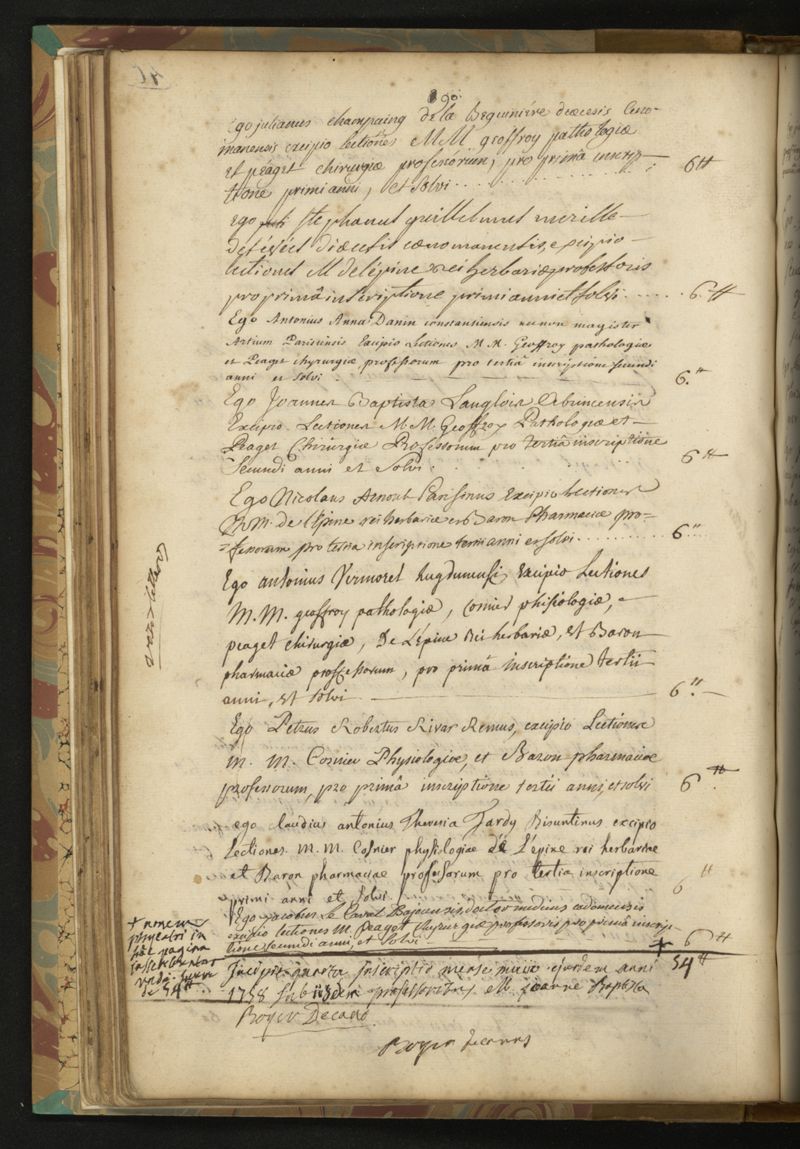 Ego julianus champaing de la Beguiniére diœcesis Ceno-
manensis excipio lectiones MM geoffroy pathologiæ
et péaget chirurgiæ professorum, pro primâ inscrip-
tione primi anni, et solvi . . . . 6 ₶
Ego stephanus guillelmus merille
diœcesis cænomanensis, excipio
lectiones M de lépine rei herbariæ professoris
pro primâ inscriptione primi anni et solvi . . . . . 6 ₶
Ego Antonius Anna Danin constantiensis nec non magister
Artium Parisiensis Excipio Lectiones M.M. Geoffroy pathologiæ
et Peaget chyrurgiæ professorum pro tertiâ inscriptione secundi
anni et solvi 6. ₶
Ego Joannes Baptista Langlois
Excipio Lectiones M.M. Geoffroy Pathologiæ et
Peaget Chirurgiæ Professorum pro tertiâ inscriptione
Secundi anni et solvi . 6 ₶
Ego Nicolaus Arnout Parisinus Excipio Lectiones
M.M. de l'Epine rei herbariæ et Baron Pharmaciæ pro-
fessorum pro tertia inscriptione tertii anni et solvi . . . . . . . . . 6 "
Ego antonius Vermoret lugdunensis Excipio Lectiones
M.M. geoffroy pathologiæ, Cosnier phisiologiæ,
peaget chirurgiæ, De L'épine Rei herbariæ, Et Baron
pharmaciæ professorum, pro primâ inscriptione tertii
anni, Et solvi 6 "
Ego Petrus Robertus Rivar Remus, excipio Lectiones
M. M. Cosnier Physiologiæ, et Baron pharmaciæ
professorum, pro primâ inscriptione tertii anni, et solvi 6 ₶
ego Claudius antonius Theresia Tardy Bisuntinus excipio
Lectiones M.M. Cosnier physiologiæ de L'épine rei herbariae
et Baron pharmaciae professorum pro tertia inscriptione
primi anni et solvi 6 ₶
Ego jacobus Le Canel Bajocensis, doctor medicus cadomensis
excipio lectiones M. Peaget chyrurgiæ professoris pro primâ inscrip-
tione secundi anni, et solvi + 6 ₶
54 ₶
+ novem
in
hac pagina
inscribuntur
unde summa
de 54 ₶
Incipit quarta Inscriptio mense maio ejusdem anni
1758 sub iisdem professoribus M. Joanne Baptista
Boyer Decano
Boyer Decanus